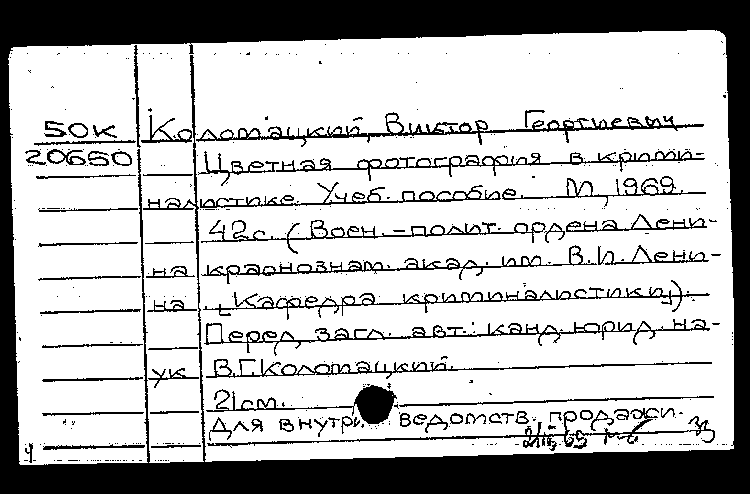 50К Коломацкий, Виктор Георгиевич
20650 Цветная фотография в крими-
налистике. Учеб. пособие. М., 1969.
42с. (Воен.-полит. ордена Лени-
на краснознам. акад. им. В.И. Лени-
на. Кафедра криминалистики).
Перед загл. авт.: канд. юрид. на-
ук В.Г. Коломацкий.
21см.
Для внутри ведомств. продажи.